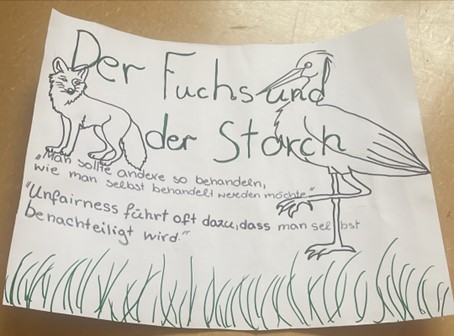 Der Fuchs und
der Storch
„Man sollte andere so behandeln,
wie man selbst behandelt werden möchte"
"Unfairness führt oft dazu, dass man selbst
benachteiligt wird."